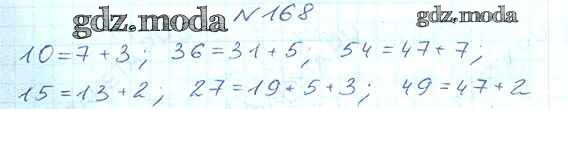 gdz.moda №168 gdz.moda
10=7+3; 36=31+5; 54=47+7;
15=13+2; 27=19+5+3; 49=47+2